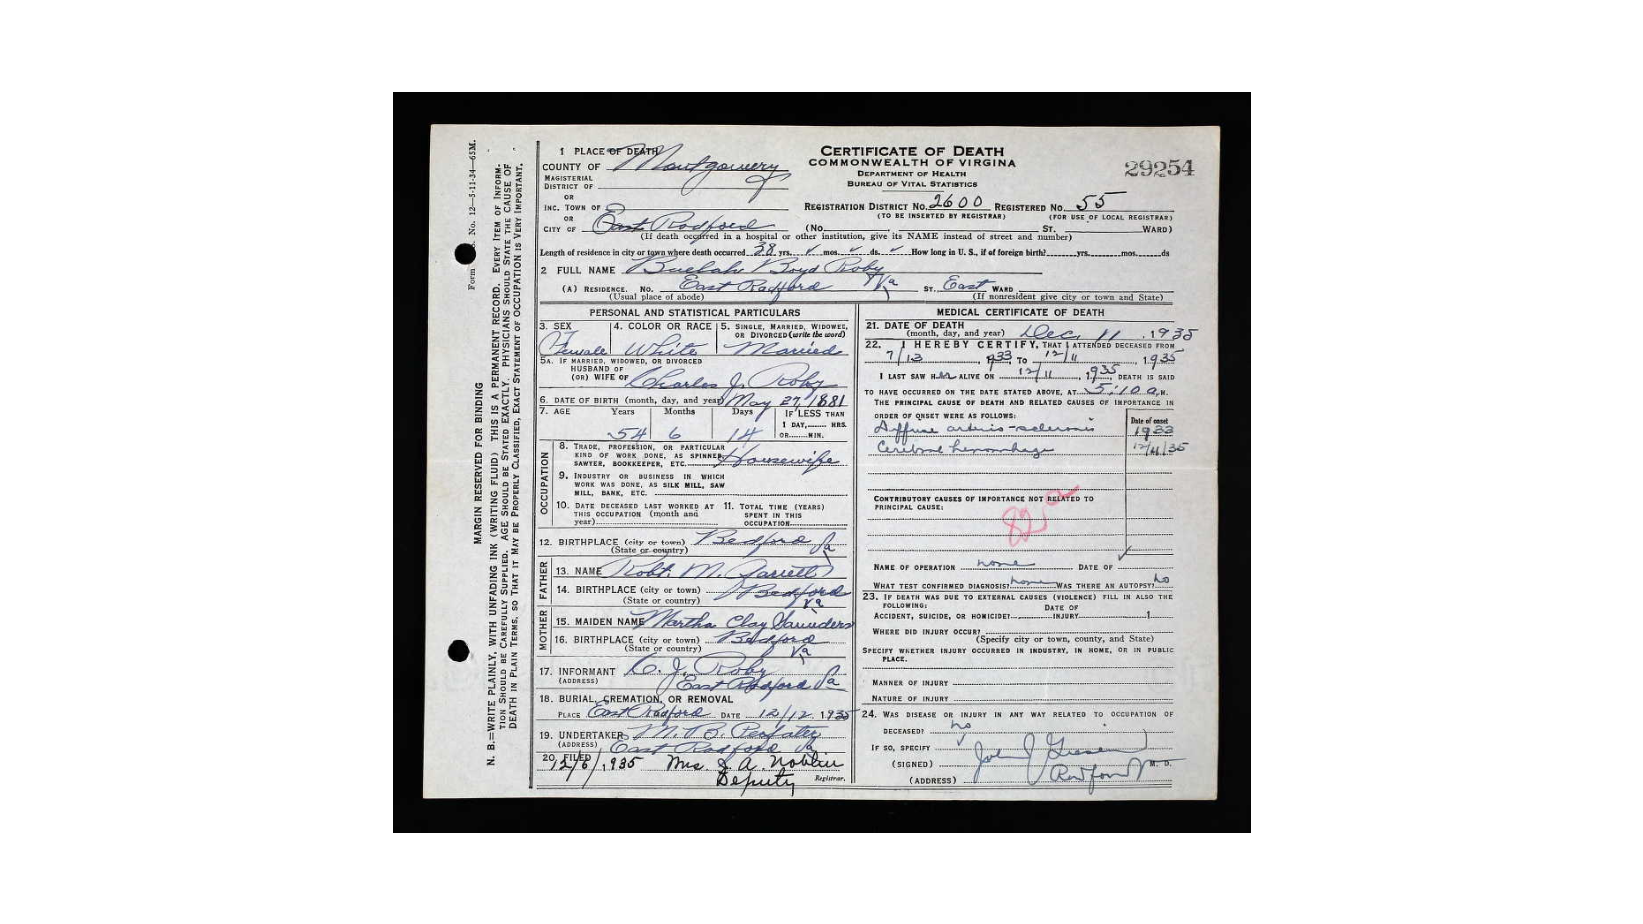 Form No. 12—5-11-34—65M.
MARGIN RESERVED FOR BINDING
N. B.—WRITE PLAINLY, WITH UNFADING INK (WRITING FLUID) THIS IS A PERMANENT RECORD. EVERY ITEM OF INFORM-
TION SHOULD BE CAREFULLY SUPPLIED. AGE SHOULD BE STATED EXACTLY. PHYSICIANS SHOULD STATE THE CAUSE OF
DEATH IN PLAIN TERMS, SO THAT IT MAY BE PROPERLY CLASSIFIED. EXACT STATEMENT OF OCCUPATION IS VERY IMPORTANT.
CERTIFICATE OF DEATH
COMMONWEALTH OF VIRGINA
DEPARTMENT OF HEALTH
BUREAU OF VITAL STATISTICS
29254
1 PLACE OF DEATH
COUNTY OF Montgomery
MAGISTERIAL
DISTRICT OF
OR
INC. TOWN OF
OR
CITY OF East Radford
REGISTRATION DISTRICT No. 2600 REGISTERED No. 55
(TO BE INSERTED BY REGISTRAR) (FOR USE OF LOCAL REGISTRAR)
(No. St. WARD)
(If death occurred in a hospital or other institution, give its NAME instead of street and number)
Length of residence in city or town where death occurred 38 yrs. mos. ds. How long in U. S., if of foreign birth? yrs. mos. ds
2 FULL NAME Buelah Boyd Roby
(A) RESIDENCE. No. East Radford Va ST. East WARD
(Usual place of abode) (If nonresident give city or town and State)
PERSONAL AND STATISTICAL PARTICULARS
3. SEX 4. COLOR OR RACE 5. SINGLE, MARRIED, WIDOWED,
OR DIVORCED (write the word)
Female White Married
5A. IF MARRIED, WIDOWED, OR DIVORCED
HUSBAND OF
(OR) WIFE OF Charles J. Roby
6. DATE OF BIRTH (month, day, and year) May 27, 1881
7. AGE Years Months Days IF LESS THAN
1 DAY, HRS.
54 6 14 OR MIN.
OCCUPATION
8. TRADE, PROFESSION, OR PARTICULAR
KIND OF WORK DONE, AS SPINNER,
SAWYER, BOOKKEEPER, ETC. Housewife
9. INDUSTRY OR BUSINESS IN WHICH
WORK WAS DONE, AS SILK MILL, SAW
MILL, BANK, ETC.
10. DATE DECEASED LAST WORKED AT 11. TOTAL TIME (YEARS)
THIS OCCUPATION (month and SPENT IN THIS
year) OCCUPATION
12. BIRTHPLACE (city or town) Bedford Va
(State or country)
FATHER
13. NAME Robt. M. Jarrett
14. BIRTHPLACE (city or town) Bedford
(State or country) Va
MOTHER
15. MAIDEN NAME Martha Clay Saunders
16. BIRTHPLACE (city or town) Bedford
(State or country) Va
17. INFORMANT C. J. Roby
(ADDRESS) East Radford Va
18. BURIAL, CREMATION, OR REMOVAL
PLACE East Radford DATE 12/12 1935
19. UNDERTAKER M. B.
(ADDRESS) East Radford Va
20. FILED 12/6/, 1935 Mrs J. A. Noblin
Deputy Registrar.
MEDICAL CERTIFICATE OF DEATH
21. DATE OF DEATH
(month, day, and year) Dec, 11, 1935
22. I HEREBY CERTIFY, THAT I ATTENDED DECEASED FROM
7/13, 1933, TO 12/11, 1935
I LAST SAW Her ALIVE ON 12/11, 1935, DEATH IS SAID
TO HAVE OCCURRED ON THE DATE STATED ABOVE, AT 5:10 a.M.
THE PRINCIPAL CAUSE OF DEATH AND RELATED CAUSES OF IMPORTANCE IN
ORDER OF ONSET WERE AS FOLLOWS: Date of onset
Diffuse arterio-sclerosis 1933
Cerebral hemorrhage 12/11/35
CONTRIBUTORY CAUSES OF IMPORTANCE NOT RELATED TO
PRINCIPAL CAUSE:
82a
NAME OF OPERATION none DATE OF
WHAT TEST CONFIRMED DIAGNOSIS? none WAS THERE AN AUTOPSY? no
23. IF DEATH WAS DUE TO EXTERNAL CAUSES (VIOLENCE) FILL IN ALSO THE
FOLLOWING: DATE OF
ACCIDENT, SUICIDE, OR HOMICIDE? INJURY 1
WHERE DID INJURY OCCUR?
(Specify city or town, county, and State)
SPECIFY WHETHER INJURY OCCURRED IN INDUSTRY, IN HOME, OR IN PUBLIC
PLACE.
MANNER OF INJURY
NATURE OF INJURY
24. WAS DISEASE OR INJURY IN ANY WAY RELATED TO OCCUPATION OF
DECEASED? no
IF SO, SPECIFY
(SIGNED) John J. M. D.
(ADDRESS) Radford